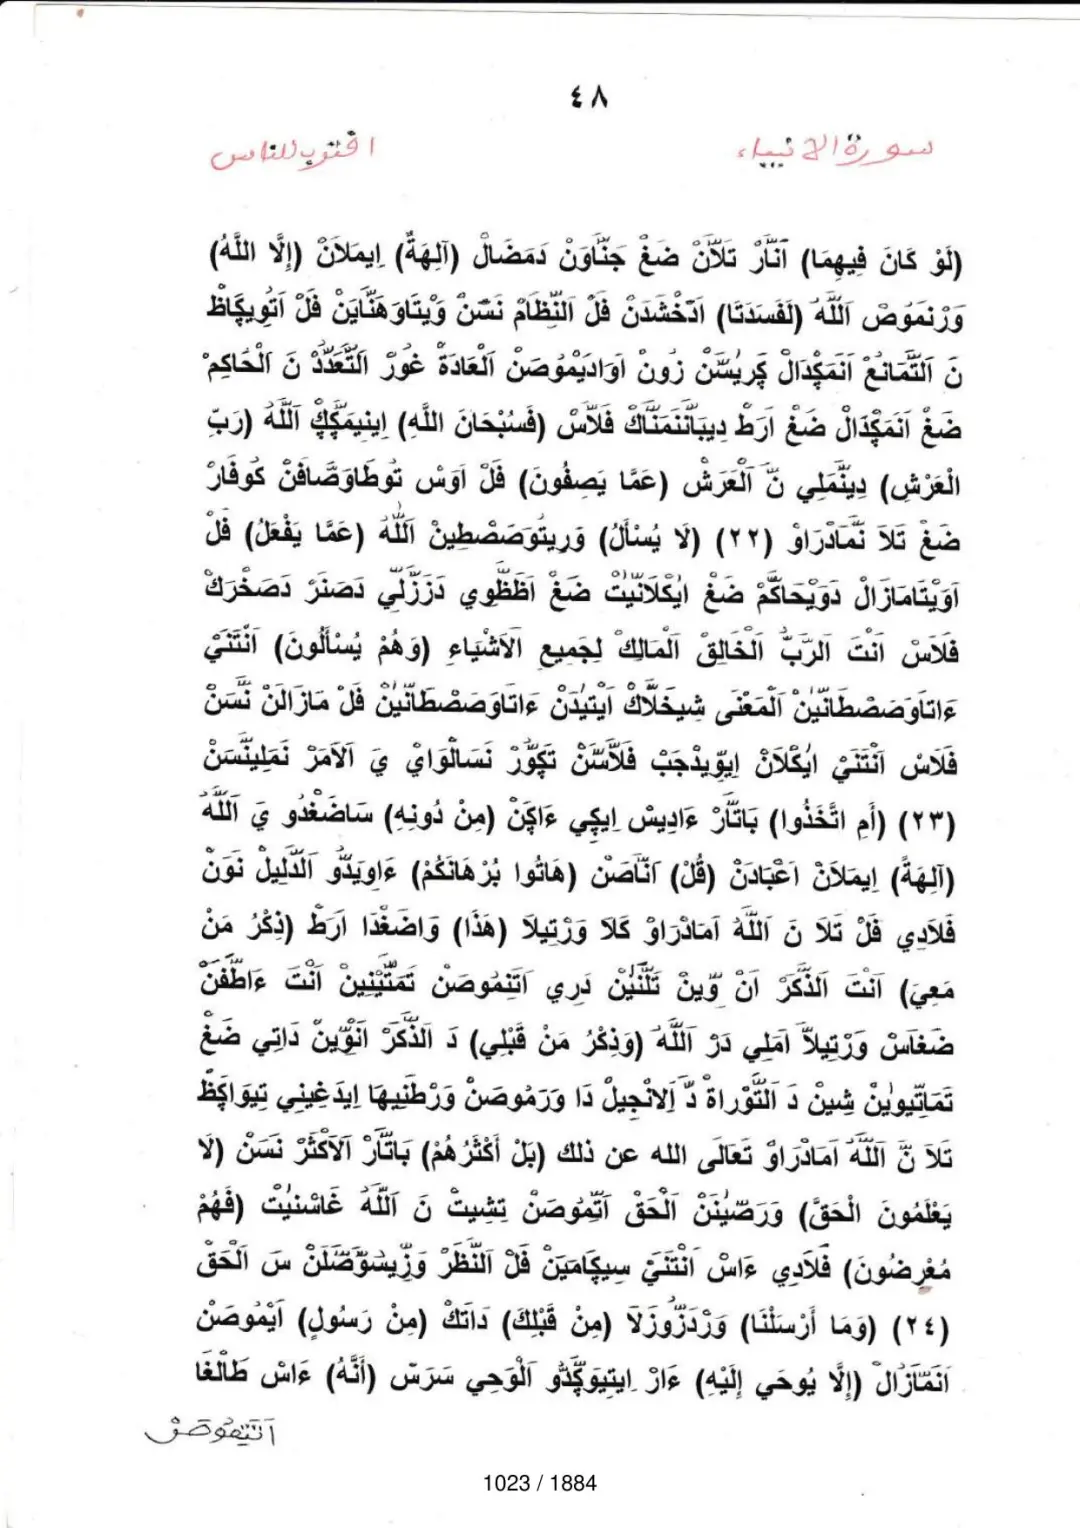 ٤٨
سورة الانبياء
افتوب للناس
(لَوْ كَانَ فِيهِمَا) اَنَّارْ تَلاَّنْ ضَغْ جَنَّاوَنْ دَمَضَالْ (آلِهَةٌ) اِيمَلاَنْ (إِلَّا اللَّهُ)
وَرْنَمُوصْ اَللَّهُ (لَفَسَدَتَا) اَدَّخْشَدَنْ فَلْ اَلنِّظَامْ نَسَنْ وَيْتَاوَهَنَّايَنْ فَلْ اَتْوِيكَّاظْ
نَ اَلتَّمَانُعْ اَنَمَكْدَالْ كَرِيسَّنْ زُونْ اَوَادِيْمُوصَنْ اَلْعَادَةْ غُورْ اَلتَّعَدُّدْ نَ اَلْحَاكِمْ
ضَغْ اَنَمَكْدَالْ ضَغْ اَرَطْ دِيبَانَّنَمَنَّاكْ فَلاَّسْ (فَسُبْحَانَ اللَّهِ) اِينِيمَكِّكْ اَللَّهُ (رَبِّ
الْعَرْشِ) دِينَّمَلِي نَّ اَلْعَرْشْ (عَمَّا يَصِفُونَ) فَلْ اَوَسْ تُوطَاوَصَّافَنْ كُوفَارْ
ضَغْ تَلاَ نَّمَادْرَاوْ (٢٢) (لَا يُسْأَلُ) وَرِيتُوَصَصْطِينْ اَللَّهُ (عَمَّا يَفْعَلُ) فَلْ
اَوَيْتَامَازَالْ دَوَيْحَاكَّمْ ضَغْ اِيكْلاَنِّيتْ ضَغْ اَظَظْوِي دَزَزْلِّي دَصَنَرْ دَصَخْرَكْ
فَلاَسْ اَنْتَ اَلرَّبُّ اَلْخَالِقْ اَلْمَالِكْ لِجَمِيعِ اَلاَشْيَاءِ (وَهُمْ يُسْأَلُونَ) اَنْتَنَيْ
ءَاتَاوَصَصْطَانَّيْنْ اَلْمَعْنَى شِيخَلاَّكْ اَيْتِيْدَنْ ءَاتَاوَصَصْطَانَّيْنْ فَلْ مَازَالَنْ نَّسَنْ
فَلاَسْ اَنْتَنَيْ اِيكْلاَنْ اِيوّيدْجَبْ فَلاَّسَّنْ تَكَوُّرْ نَسَالْوَايْ يَ اَلاَمَرْ نَمَلِينَّسَنْ
(٢٣) (أَمِ اتَّخَذُوا) بَاتَّارْ ءَادِيسْ اِيكِي ءَاكَنْ (مِنْ دُونِهِ) سَاضَغْدُو يَ اَللَّهُ
(آلِهَةً) اِيمَلاَنْ اَعْبَادَنْ (قُلْ) اَنَّاصَنْ (هَاتُوا بُرْهَانَكُمْ) ءَاوِيَدُّو اَلدَّلِيلْ نَوَنْ
فَلاَدِي فَلْ تَلاَ نَ اَللَّهُ اَمَادْرَاوْ كَلاَ وَرْتِيلاَ (هَذَا) وَاضَغْدَا اَرَطْ (ذِكْرُ مَنْ
مَعِيَ) اَنْتَ اَلذِّكَرْ اَنْ وِّينْ تَلْنَيْنْ دَرِي اَتَنْمُوصَنْ تَمَتِّينِينْ اَنْتَ ءَاطَفَنْ
ضَغَاسْ وَرْتِيلاَّ اَمَلِي دَرْ اَللَّهُ (وَذِكْرُ مَنْ قَبْلِي) دَ اَلذِّكَرْ اَنْوِّينْ دَاتِي ضَغْ
تَمَاتِّيوِيْنْ شِينْ دَ اَلتَّوْرَاةْ دَّ اَلاِنْجِيلْ دَا وَرَمُوصَنْ وَرْطَنِيهَا اِيدَغِينِي تِيوَاكَظْ
تَلاَ نَّ اَللَّهُ اَمَادْرَاوْ تَعَالَى الله عن ذلك (بَلْ أَكْثَرُهُمْ) بَاتَّارْ اَلاَكْثَرْ نَسَنْ (لَا
يَعْلَمُونَ الْحَقَّ) وَرَصِّينَنْ اَلْحَقْ اَتِّمُوصَنْ تِشِيتْ نَ اَللَّهُ غَاسْنِيتْ (فَهُمْ
مُعْرِضُونَ) فَلاَدِي ءَاسْ اَنْتَنَيْ سِيكَامَيَنْ فَلْ اَلنَّظَرْ وَزِّيسَوَّصَّلَنْ سَ اَلْحَقْ
(٢٤) (وَمَا أَرْسَلْنَا) وَرْدَزُّوزَلاَ (مِنْ قَبْلِكَ) دَاتَكْ (مِنْ رَسُولٍ) اَيْمُوصَنْ
اَنَمَّازَالْ (إِلَّا يُوحَي إِلَيْهِ) ءَارْ اِيتِيوَكِّدُّو اَلْوَحِي سَرَسْ (أَنَّهُ) ءَاسْ طَالْغَا
اَنْتِيمُوصَنْ
1023 / 1884